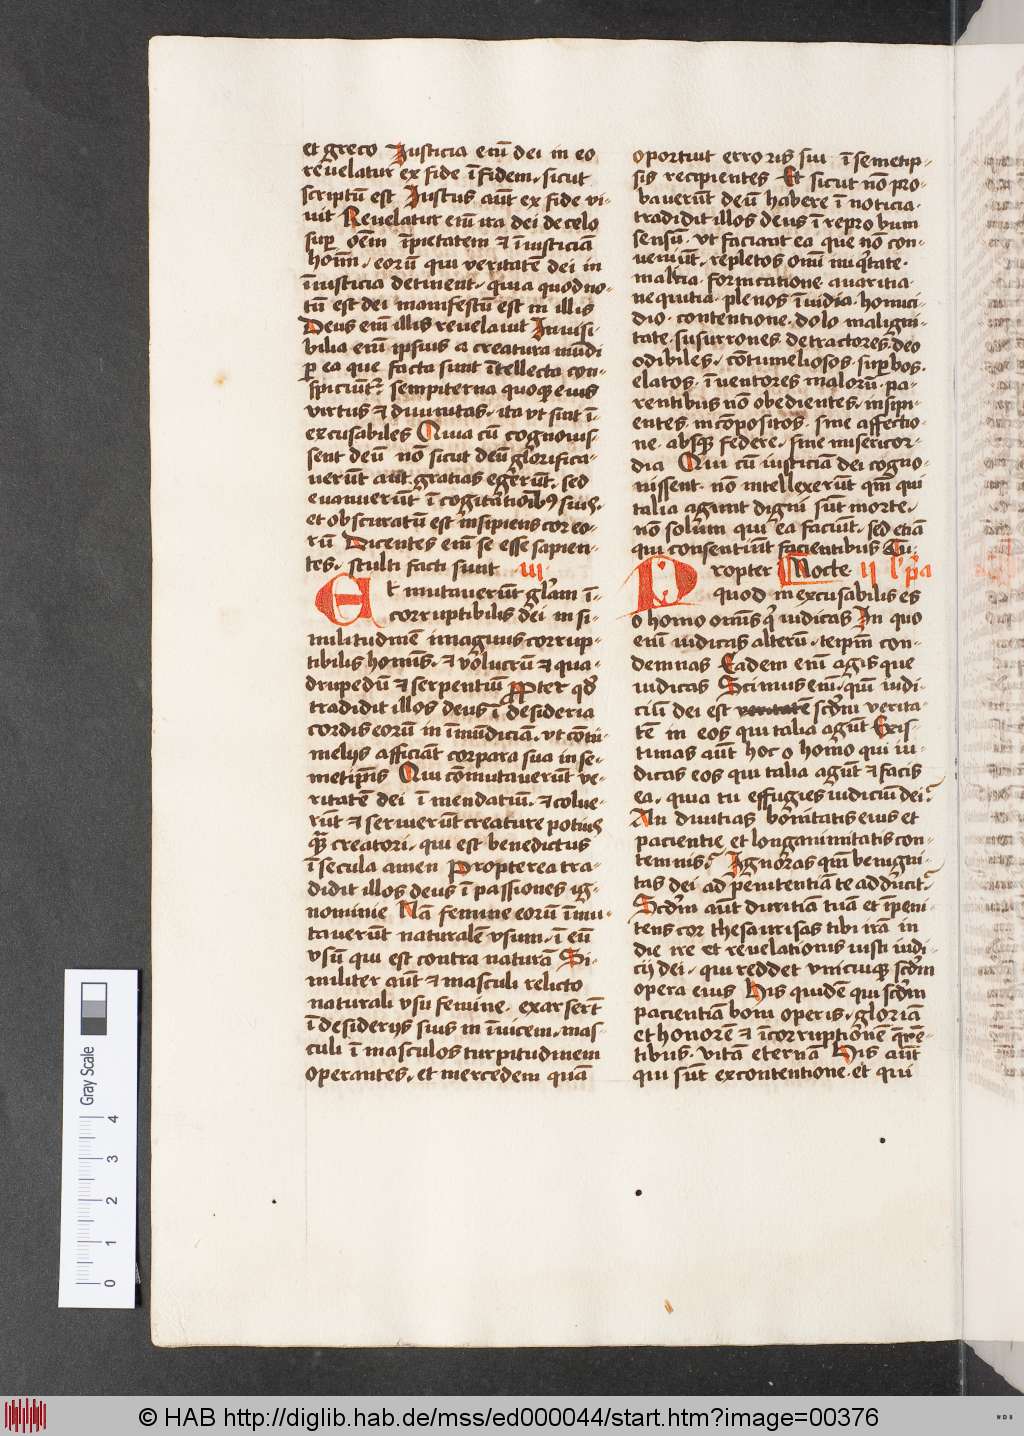 et greco Justicia eni͞ dei in eo
reuelatur ex fide i͞ fidem. sicut
scriptu͞ est Justus au͞t ex fide vi-
uit Reuelatur eni͞ ira dei de celo
sup̱ o͞em i͞pietatem ⁊ i͞iusticia͞
ho͞im. eoru͞ qui veritate͞ dei in
i͞iusticia detinent. quia quod no-
tu͞ est dei manifestu͞ est in illis
Deus eni͞ illis reuelauit Inuisi-
bilia eni͞ ipsius a creatura mu͞di
p̱ ea que facta sunt i͞tellecta con-
spiciu͞tr. sempiterna quoqꝫ eius
virtus ⁊ diuinitas. ita vt sint i͞
excusabiles Quia cu͞ cognouis-
sent deu͞ no͞ sicut deu͞ glorifica-
ueru͞t aut gratias egeru͞t. sed
euanueru͞t i͞ cogitationibꝰ suis.
et obscuratu͞ est insipiens cor eo-
ru͞ Dicentes eni͞ se esse sapien-
tes. stulti facti sunt iii
Et mutaueru͞t gl'iam i͞-
corruptibilis dei in si-
militudine͞ imaginis corrup-
tibilis hominis. ⁊ volucru͞ ⁊ qua-
drupedu͞ ⁊ serpentiu͞ p̱pter qd'
tradidit illos deus i͞ desideria
cordis eoru͞ in i͞mu͞dicia͞. vt co͞tu-
melijs afficia͞t corpora sua in se-
metip͞is Qui co͞mutaueru͞t ve-
ritate͞ dei i͞ mendatiu͞. ⁊ colue-
ru͞t ⁊ serueru͞t creature potius
q͞ꝫ creatori. qui est benedictus
i͞ secula amen Propterea tra-
didit illos deus i͞ passiones ig-
nominie Na͞ femine eoru͞ i͞mu-
taueru͞t naturale͞ vsum. i͞ eu͞
vsu͞ qui est contra natura͞ Si-
militer au͞t ⁊ masculi relicto
naturali vsu femine. exarseru͞t
i͞ desiderijs suis in i͞uicem. mas-
culi i͞ masculos turpitudinem
operantes. et mercedem qua͞
oportuit erroris sui i͞ semetip-
sis recipientes Et sicut no͞ pro-
baueru͞t deu͞ habere i͞ noticia.
tradidit illos deus i͞ reprobum
sensu͞. vt faciant ea que no͞ con-
ueniu͞t. repletos om͞i iniq'tate.
malicia. fornicatione auaritia.
nequitia. plenos i͞uidia. homici-
dio. contentione. dolo maligni-
tate. susurrones detractores. deo
odibiles. co͞tumeliosos. sup̱bos.
elatos. i͞uentores maloru͞. pa-
rentibus no͞ obedientes. insipi-
entes. inco͞positos. sine affectio-
ne. absqꝫ federe. sine misericor-
dia Qui cu͞ iusticia͞ dei cogno-
uissent. no͞ intellexeru͞t qm͞ qui
talia agunt digni su͞t morte.
no͞ solum qui ea faciu͞t. sed etia͞
qui consentiu͞t facientibus Tu
Propter Nocte ii l' p'a
quod inexcusabilis es
o homo omnis q' iudicas In quo
eni͞ iudicas alteru͞. teip͞m con-
demnas Eadem eni͞ agis que
iudicas Scimus eni͞. qm͞ iudi-
ciu͞ dei est veritate͞ scd'm verita-
te͞ in eos qui talia agu͞t Exis-
timas au͞t hoc o homo qui iu-
dicas eos qui talia agu͞t ⁊ facis
ea. quia tu effugies iudiciu͞ dei?
An diuitias bonitatis eius et
pacientie et longanimitatis con-
temnis? Ignoras qm͞ benigni-
tas dei ad penitentia͞ te adducit?
Scd'm au͞t duritia͞ tua͞ et i͞peni-
tens cor thesaurisas tibi ira͞ in
die ire et reuelationis iusti iudi-
cij dei. qui reddet vnicuiqꝫ scd'm
opera eius His quide͞ qui scd'm
pacientia͞ boni operis. gloria͞
et honore͞ ⁊ i͞corruptione͞ q're͞-
tibus. vita͞ eterna͞ His au͞t
qui su͞t excontentione. et qui
Gray Scale
0 1 2 3 4
© HAB http://diglib.hab.de/mss/ed000044/start.htm?image=00376